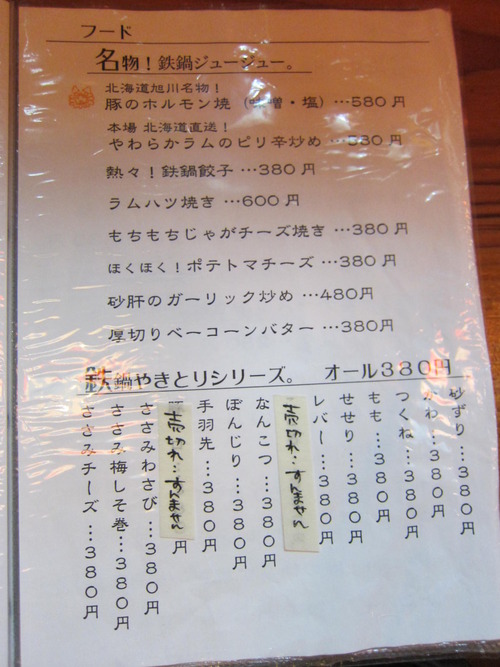 フード
名物！鉄鍋ジュージュー。
北海道旭川名物！
豚のホルモン焼（味噌・塩）…580円
本場 北海道直送！
やわらかラムのピリ辛炒め…580円
熱々！鉄鍋餃子…380円
ラムハツ焼き…600円
もちもちじゃがチーズ焼き…380円
ほくほく！ポテトマチーズ…380円
砂肝のガーリック炒め…480円
厚切りベーコーンバター…380円
鉄鍋やきとりシリーズ。 オール380円
砂ずり…380円
かわ…380円
つくね…380円
もも…380円
せせり…380円
レバー…380円
売切れ…すんません
なんこつ…380円
ぼんじり…380円
手羽先…380円
売切れ…すんません 円
ささみわさび…380円
ささみ梅しそ巻…380円
ささみチーズ…380円